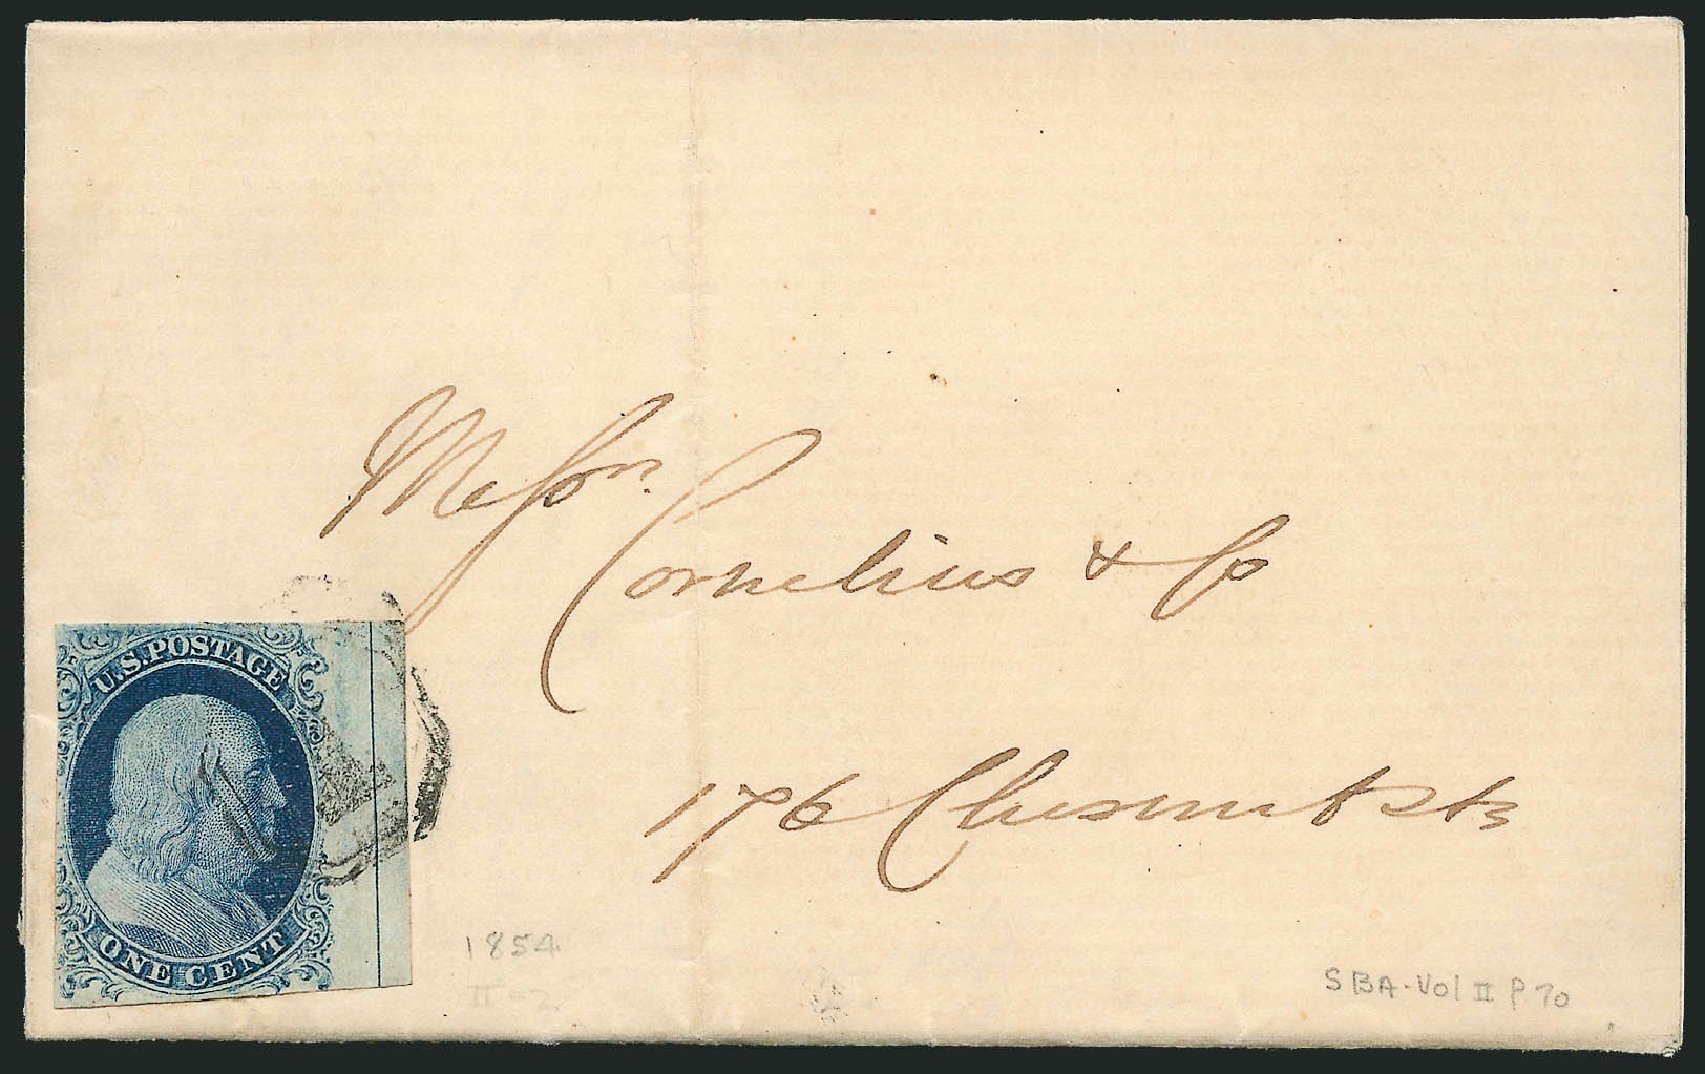 Messrs.
Cornelius & Co
176 Chesnut Str
U.S. POSTAGE
ONE CENT
1854
II - 2
SBA - Vol II P 70